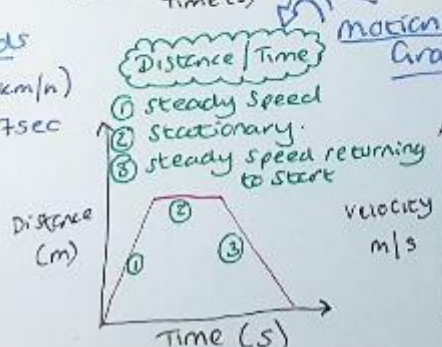 Time (s)
Motion
Gra
ds
km/h)
7sec
Distance/Time
① steady speed
② stationary.
③ steady speed returning
to start
Distance
(m)
①
②
③
Time (s)
velocity
m/s